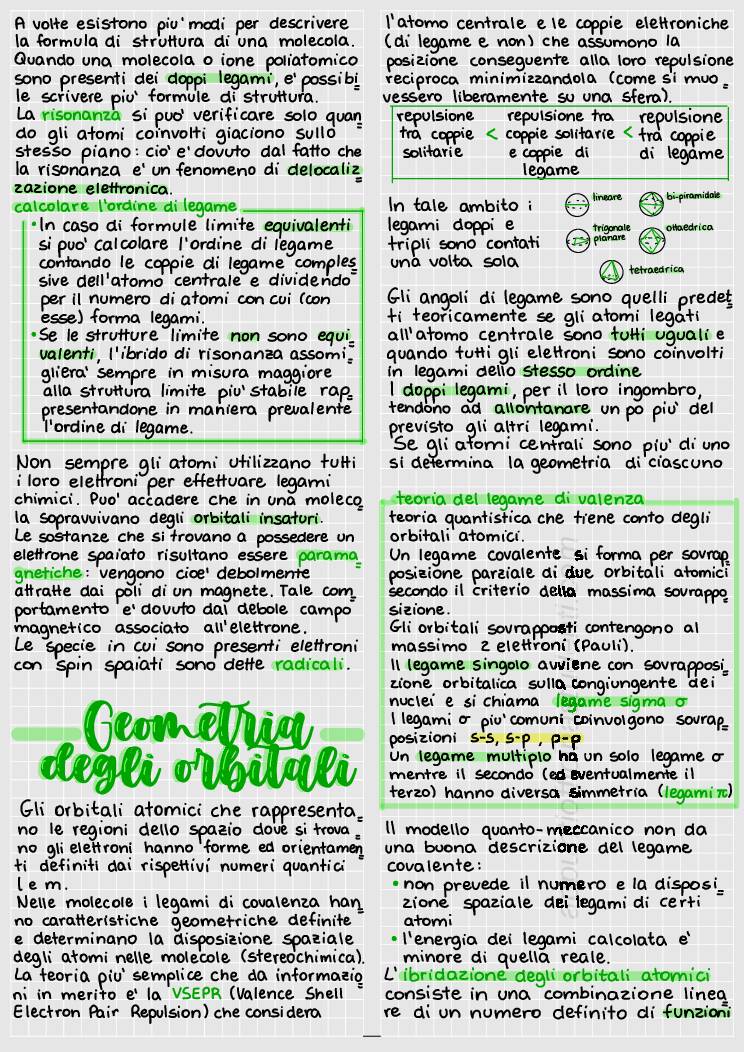 A volte esistono piu' modi per descrivere
la formula di struttura di una molecola.
Quando una molecola o ione poliatomico
sono presenti dei doppi legami, e' possibi=
le scrivere piu' formule di struttura.
La risonanza si puo' verificare solo quan=
do gli atomi coinvolti giaciono sullo
stesso piano: cio' e' dovuto dal fatto che
la risonanza e' un fenomeno di delocaliz=
zazione elettronica.
calcolare l'ordine di legame
• In caso di formule limite equivalenti
si puo' calcolare l'ordine di legame
contando le coppie di legame comples=
sive dell'atomo centrale e dividendo
per il numero di atomi con cui (con
esse) forma legami.
• Se le strutture limite non sono equi=
valenti, l'ibrido di risonanza assomi=
gliera' sempre in misura maggiore
alla struttura limite piu' stabile rap=
presentandone in maniera prevalente
l'ordine di legame.
Non sempre gli atomi utilizzano tutti
i loro elettroni per effettuare legami
chimici. Puo' accadere che in una moleco=
la sopravvivano degli orbitali insaturi.
Le sostanze che si trovano a possedere un
elettrone spaiato risultano essere parama=
gnetiche: vengono cioe' debolmente
attratte dai poli di un magnete. Tale com=
portamento e' dovuto dal debole campo
magnetico associato all'elettrone.
Le specie in cui sono presenti elettroni
con spin spaiati sono dette radicali.
Geometria
degli orbitali
Gli orbitali atomici che rappresenta=
no le regioni dello spazio dove si trova=
no gli elettroni hanno forme ed orientamen=
ti definiti dai rispettivi numeri quantici
l e m.
Nelle molecole i legami di covalenza han=
no caratteristiche geometriche definite
e determinano la disposizione spaziale
degli atomi nelle molecole (stereochimica).
La teoria piu' semplice che da informazio=
ni in merito e' la VSEPR (Valence Shell
Electron Pair Repulsion) che considera
l'atomo centrale e le coppie elettroniche
(di legame e non) che assumono la
posizione conseguente alla loro repulsione
reciproca minimizzandola (come si muo=
vessero liberamente su una sfera).
repulsione tra coppie solitarie < repulsione tra coppie solitarie e coppie di legame < repulsione tra coppie di legame
In tale ambito i
legami doppi e
tripli sono contati
una volta sola
lineare
bi-piramidale
trigonale planare
ottaedrica
tetraedrica
Gli angoli di legame sono quelli predet=
ti teoricamente se gli atomi legati
all'atomo centrale sono tutti uguali e
quando tutti gli elettroni sono coinvolti
in legami dello stesso ordine
I doppi legami, per il loro ingombro,
tendono ad allontanare un po piu' del
previsto gli altri legami.
Se gli atomi centrali sono piu' di uno
si determina la geometria di ciascuno
teoria del legame di valenza
teoria quantistica che tiene conto degli
orbitali atomici.
Un legame covalente si forma per sovrap=
posizione parziale di due orbitali atomici
secondo il criterio della massima sovrappo=
sizione.
Gli orbitali sovrapposti contengono al
massimo 2 elettroni (Pauli).
Il legame singolo avviene con sovrapposi=
zione orbitalica sulla congiungente dei
nuclei e si chiama legame sigma σ
I legami σ piu' comuni coinvolgono sovrap=
posizioni s-s, s-p, p-p
Un legame multiplo ha un solo legame σ
mentre il secondo (ed eventualmente il
terzo) hanno diversa simmetria (legami π)
Il modello quanto-meccanico non da
una buona descrizione del legame
covalente:
• non prevede il numero e la disposi=
zione spaziale dei legami di certi
atomi
• l'energia dei legami calcolata e'
minore di quella reale.
L'ibridazione degli orbitali atomici
consiste in una combinazione linea=
re di un numero definito di funzioni